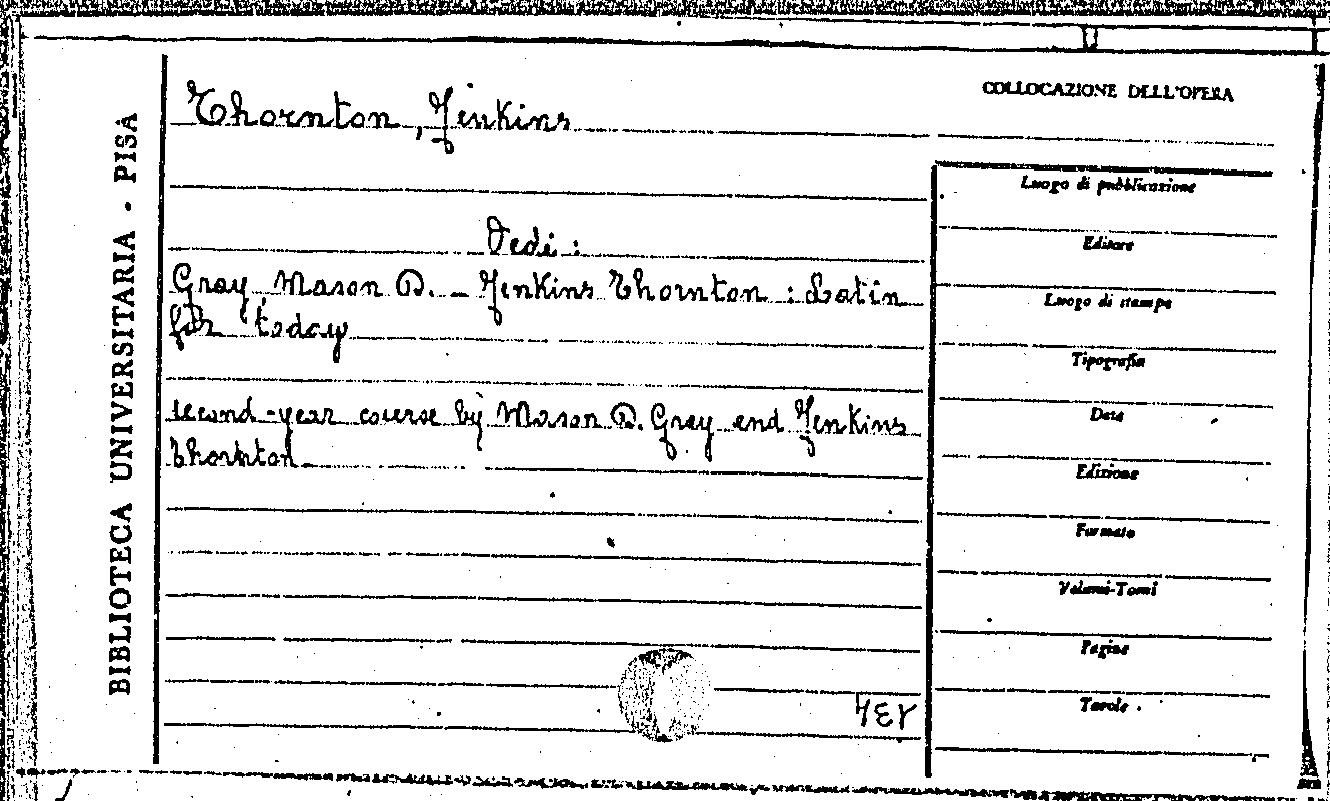 BIBLIOTECA UNIVERSITARIA - PISA
COLLOCAZIONE DELL'OPERA
Thornton, Jenkins
Vedi :
Gray, Mason D. - Jenkins Thornton : Latin
for today
second-year course by Mason D. Gray end Jenkins
Thornton
Luogo di pubblicazione
Editore
Luogo di stampa
Tipografia
Data
Edizione
Formato
Volumi-Tomi
Pagine
Tavole